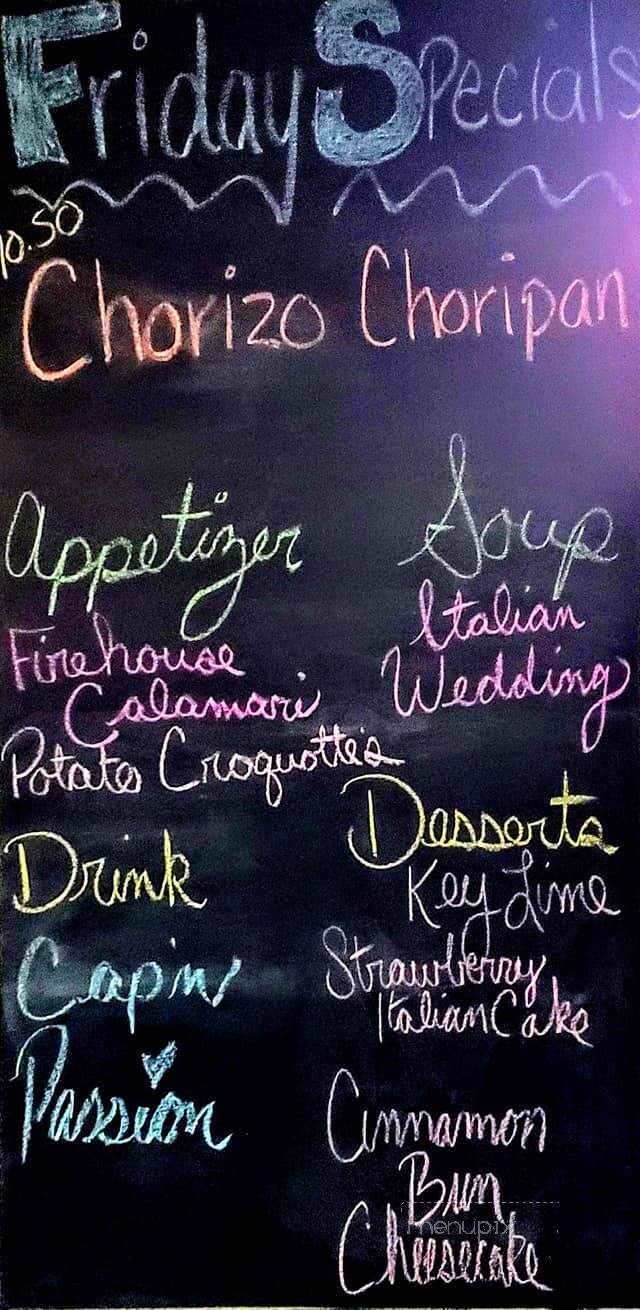 Friday Specials
10.50
Chorizo Choripan
Appetizer
Firehouse
Calamari
Potato Croquotte's
Drink
Cap'n
Passion
Soup
Italian
Wedding
Desserts
Key Lime
Strawberry
Italian Cake
Cinnamon
Bun
Cheesecake
menupix